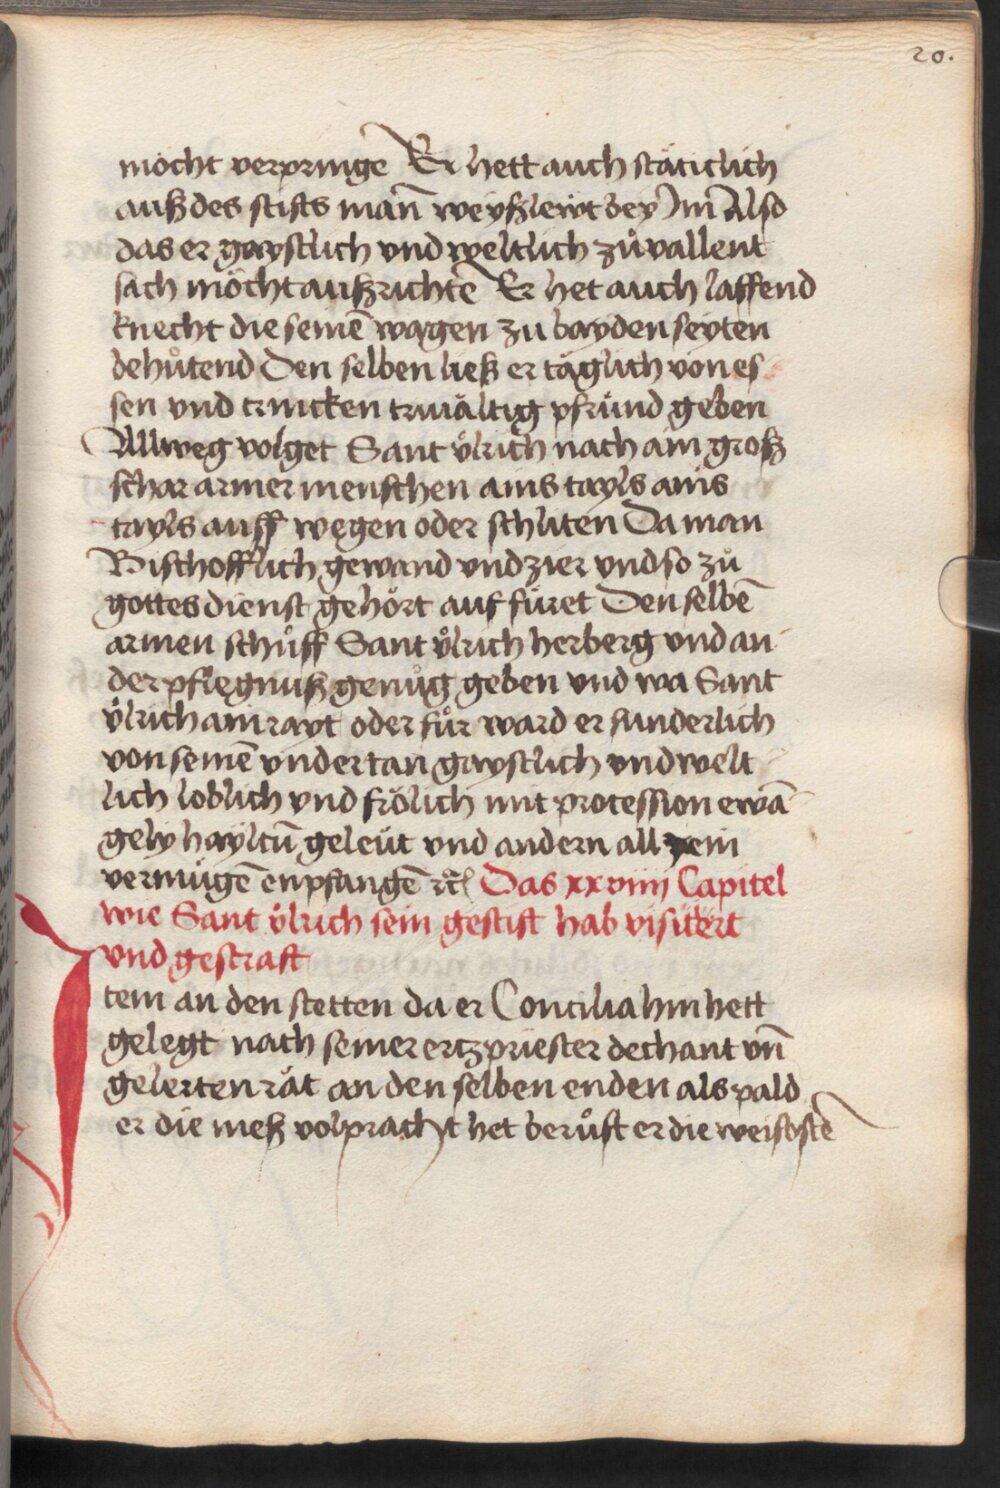 20.
möcht verpringe Er hett auch stäticlich
auß des stifts man̄ weyßlewt bey Im Also
das er gaystlich vnd weltlich zůvallent
sach möcht außrichtē Er het auch laffend
knecht die seinē wagen zu bayden seyten
behůtend Den selben ließ er täglich von es
sen vnd trincken triuältig pfründ geben
Allweg volget Sant v̊lrich nach ain groß
schar armer menschen ains tayls ains
tayls auff wegen oder schliten Da man
Bischofflich gewand vnd zier vnd so zů
gottes dienst gehört auf füret Den selbē
armen schůff Sant v̊lrich herberg vnd an
der pflegnuß genůg geben vnd wa Sant
v̊lrich ain rayt oder fůr ward er sunderlich
von seinē vndertan gaystlich vnd welt
lich loblich vnd frölich mit procession ewā
gely hayltū geleüt vnd andern all zem
vermügē enpfangē ⁊c̄ Das xxviiij Capitel
wie Sant v̊lrich sein gestift hab visitiert
vnd gestraft
Item an den stetten da er Concilia hin hett
gelegt nach seiner ertzpriester dechant vn̄
gelerten rät an den selben enden als pald
er die meß volpracht het berůft er die weisosstē